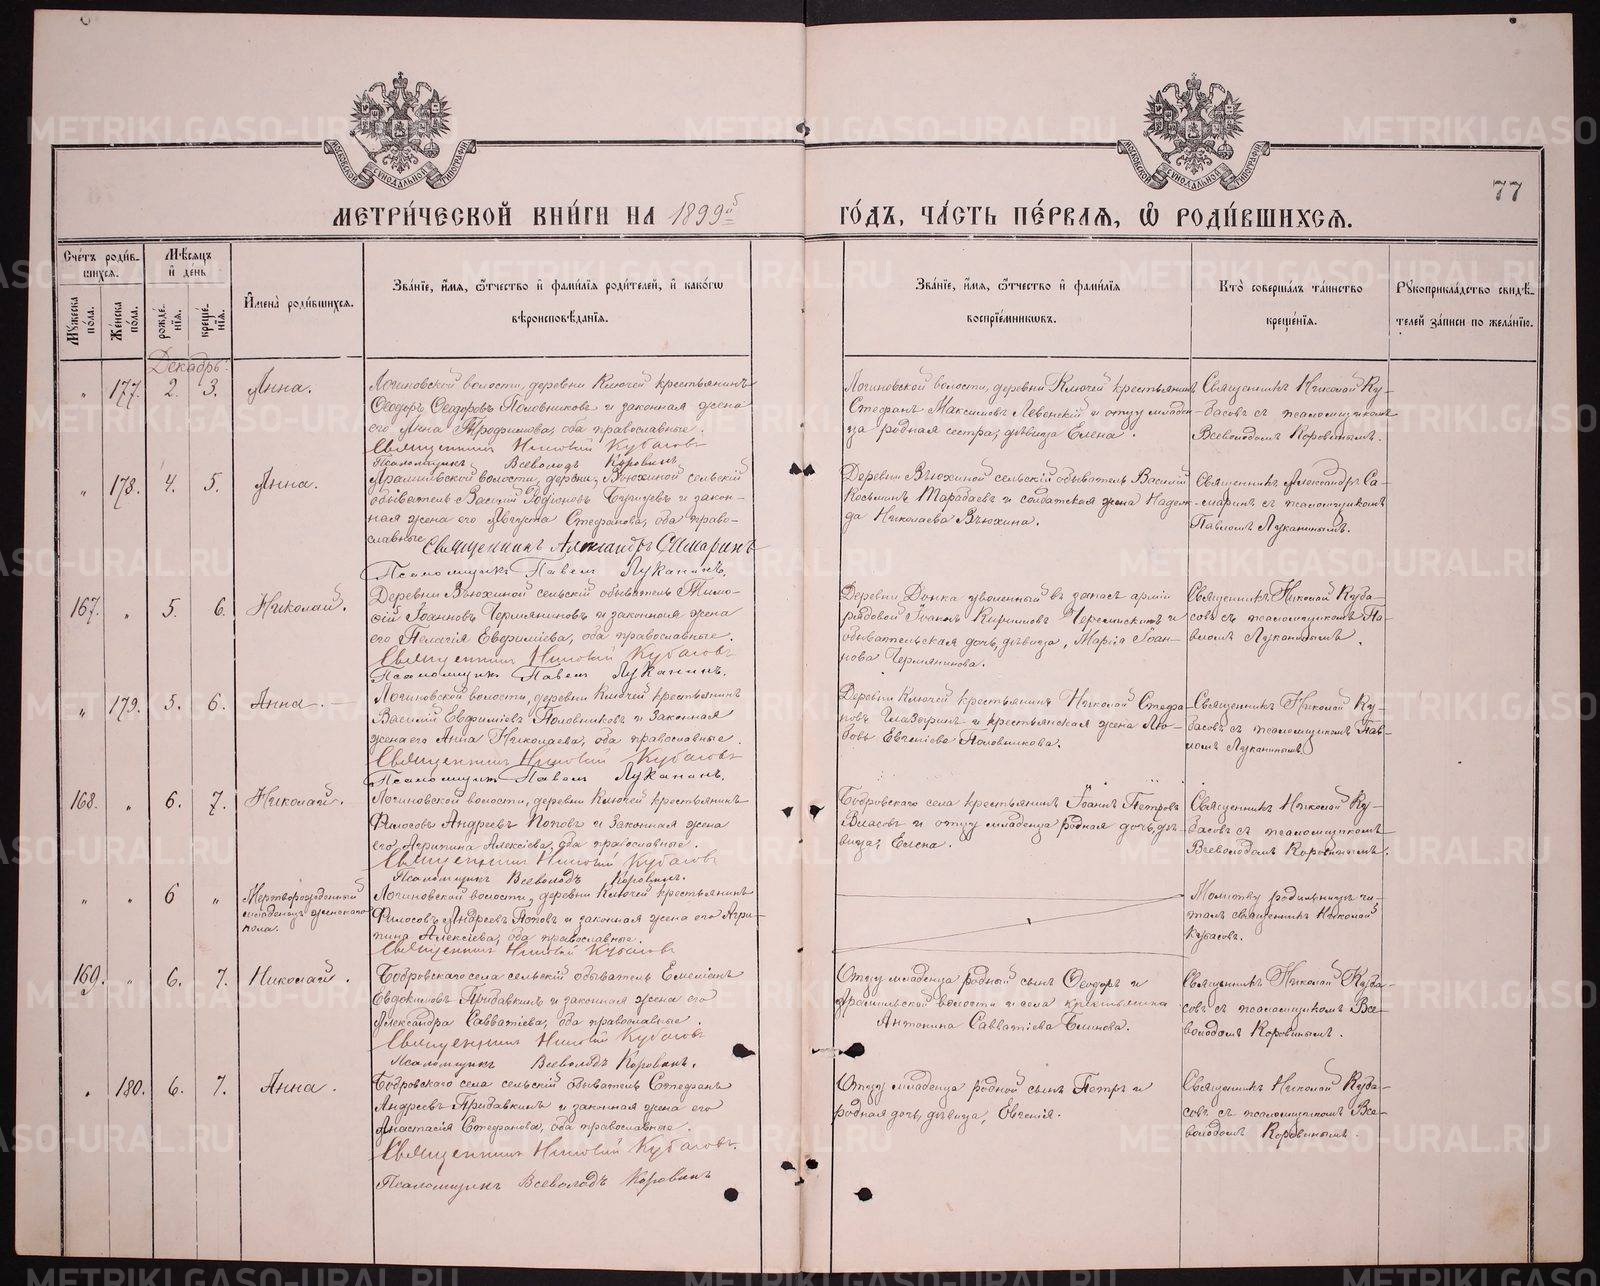 МОСКОВСКОЙ СУНОДАЛЬНОЙ ТИПОГРАФІИ
МОСКОВСКОЙ СУНОДАЛЬНОЙ ТИПОГРАФІИ
77
МЕТРИ́ЧЕСКОЙ КНИ́ГИ НА 1899й
ГО́ДЪ, ЧА́СТЬ ПЕ́РВАѦ, Ѽ РОДИ́ВШИХСѦ.
Сче́тъ роди́в-
шихсѧ.
Мꙋ́жеска по́ла.
Же́нска по́ла.
Мѣ́сѧцъ
и҆ де́нь
рожде́-
нїѧ.
креще́-
нїѧ.
И҆мена̀ роди́вшихсѧ.
Зва́нїе, и҆́мѧ, ѻ҆́тчество и҆ фами́лїѧ роди́телей, и҆ како́гѡ
вѣроисповѣ́данїѧ.
Зва́нїе, и҆́мѧ, ѻ҆́тчество и҆ фами́лїѧ
воспрїе́мникѡвъ.
Кто̀ соверша́лъ та́инство
креще́нїѧ.
Рꙋкоприкла́дство свидѣ́-
телей за́писи по жела́нїю.
Декабрь:
" 177. 2. 3. Анна.
Логиновской волости, деревни Ключей крестьянинъ
Ѳеодоръ Ѳеодоровъ Половниковъ и законная жена
его Анна Трофимова, оба православные.
Священникъ Николай Кубасовъ
Псаломщикъ Всеволодъ Коровинъ
Логиновской волости, деревни Ключей крестьянинъ
Стефанъ Максимовъ Левенскій и отцу младен-
ца родная сестра, дѣвица Елена.
Священникъ Николай Ку-
басовъ съ псаломщикомъ
Всеволодомъ Коровинымъ.
" 178. 4. 5. Анна.
Арамильской волости, деревни Вьюхиной сельскій
обыватель Василій Родіоновъ и закон-
ная жена его Августа Стефанова, оба право-
славные
Священникъ Александръ Симаринъ
Псаломщикъ Павелъ Луканинъ.
Деревни Вьюхиной сельскій обыватель Василій
Косьминъ Тарабаевъ и солдатская жена Надеж-
да Николаева Вьюхина.
Священникъ Александръ Си-
маринъ съ псаломщикомъ
Павломъ Луканинымъ.
167. " 5. 6. Николай.
Деревни Вьюхиной сельскій обыватель Тимо-
ѳей Іоанновъ Чермяниновъ и законная жена
его Пелагія Евфиміева, оба православные.
Священникъ Николай Кубасовъ
Псаломщикъ Павелъ Луканинъ.
Деревни уволенный въ запасъ арміи
рядовой Іоаннъ Кириловъ Черемискинъ и
обывательская дочь, дѣвица, Марія Іоан-
нова Чермянинова.
Священникъ Николай Куба-
совъ съ псаломщикомъ Па-
вломъ Луканинымъ.
" 179. 5. 6. Анна.
Логиновской волости, деревни Ключей крестьянинъ
Василій Евфиміевъ Половниковъ и законная
жена его Анна Николаева, оба православные.
Священникъ Николай Кубасовъ
Псаломщикъ Павелъ Луканинъ.
Деревни Ключей крестьянинъ Николай Стефа-
новъ Глазыринъ и крестьянская жена Лю-
бовь Евгеніева Половникова.
Священникъ Николай Ку-
басовъ съ псаломщикомъ Пав-
ломъ Луканинымъ.
168. " 6. 7. Николай.
Логиновской волости, деревни Ключей крестьянинъ
Филосовъ Андреевъ Поповъ и законная жена
его Агрипина Алексіева, оба православные.
Священникъ Николай Кубасовъ
Псаломщикъ Всеволодъ Коровинъ.
Бобровскаго села крестьянинъ Іоаннъ Петровъ
Власовъ и отцу младенца родная дочь, дѣ-
вица, Елена.
Священникъ Николай Ку-
басовъ съ псаломщикомъ
Всеволодомъ Коровинымъ.
" " 6 " Мертворожденный
младенецъ женскаго
пола.
Логиновской волости, деревни Ключей крестьянинъ
Филосовъ Андреевъ Поповъ и законная жена его Агри-
пина Алексіева, оба православные.
Священникъ Николай Кубасовъ
Молитву родильницѣ чи-
талъ священникъ Николай
Кубасовъ.
169. " 6. 7. Николай.
Бобровскаго села сельскій обыватель Емеліанъ
Евдокимовъ Придавкинъ и законная жена его
Александра Савватіева, оба православные.
Священникъ Николай Кубасовъ
Псаломщикъ Всеволодъ Коровинъ.
Отцу младенца родной сынъ Ѳеодоръ и
Арамильской волости и села крестьянина
Антонина Савватіева Блинова.
Священникъ Николай Куба-
совъ съ псаломщикомъ Все-
володомъ Коровинымъ.
" 180. 6. 7. Анна.
Бобровскаго села сельскій обыватель Стефанъ
Андреевъ Придавкинъ и законная жена его
Анастасія Стефанова, оба православные.
Священникъ Николай Кубасовъ.
Псаломщикъ Всеволодъ Коровинъ
Отцу младенца родной сынъ Петръ и
родная дочь, дѣвица, Евгенія.
Священникъ Николай Куба-
совъ съ псаломщикомъ Все-
володомъ Коровинымъ.
METRIKI.GASO-URAL.RU